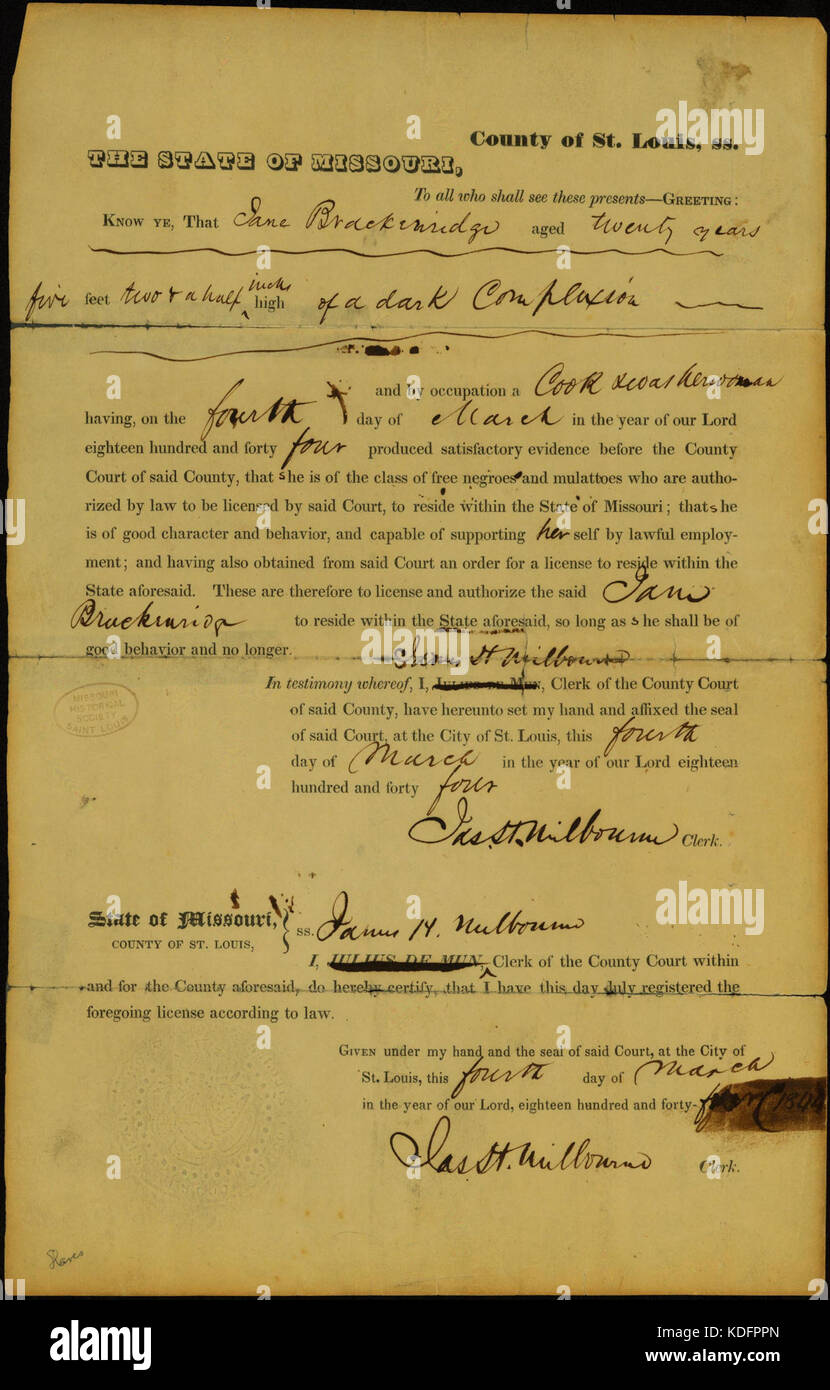 County of St. Louis, ss.
THE STATE OF MISSOURI,
To all who shall see these presents—GREETING:
KNOW YE, That Jane Brackenridge aged twenty years
five feet two & a half inches high of a dark Complexion
and by occupation a Cook & washerwoman
having, on the fourth day of March in the year of our Lord
eighteen hundred and forty four produced satisfactory evidence before the County
Court of said County, that she is of the class of free negroes and mulattoes who are autho-
rized by law to be licensed by said Court, to reside within the State of Missouri; that she
is of good character and behavior, and capable of supporting her self by lawful employ-
ment; and having also obtained from said Court an order for a license to reside within the
State aforesaid. These are therefore to license and authorize the said Jane
Brackenridge to reside within the State aforesaid, so long as she shall be of
good behavior and no longer.
James H Milbourne
In testimony whereof, I, JULIUS DE MUN, Clerk of the County Court
of said County, have hereunto set my hand and affixed the seal
of said Court, at the City of St. Louis, this fourth
day of March in the year of our Lord eighteen
hundred and forty four
Jas. H. Milbourne Clerk.
MISSOURI
HISTORICAL
SOCIETY
SAINT LOUIS
State of Missouri,
COUNTY OF ST. LOUIS,
ss. James H. Milbourne
I, JULIUS DE MUN, Clerk of the County Court within
and for the County aforesaid, do hereby certify, that I have this day duly registered the
foregoing license according to law.
GIVEN under my hand and the seal of said Court, at the City of
St. Louis, this fourth day of March
in the year of our Lord, eighteen hundred and forty-four (1844
Jas. H. Milbourne Clerk.
Slaves
alamy
Image ID: KDFPPN
www.alamy.com